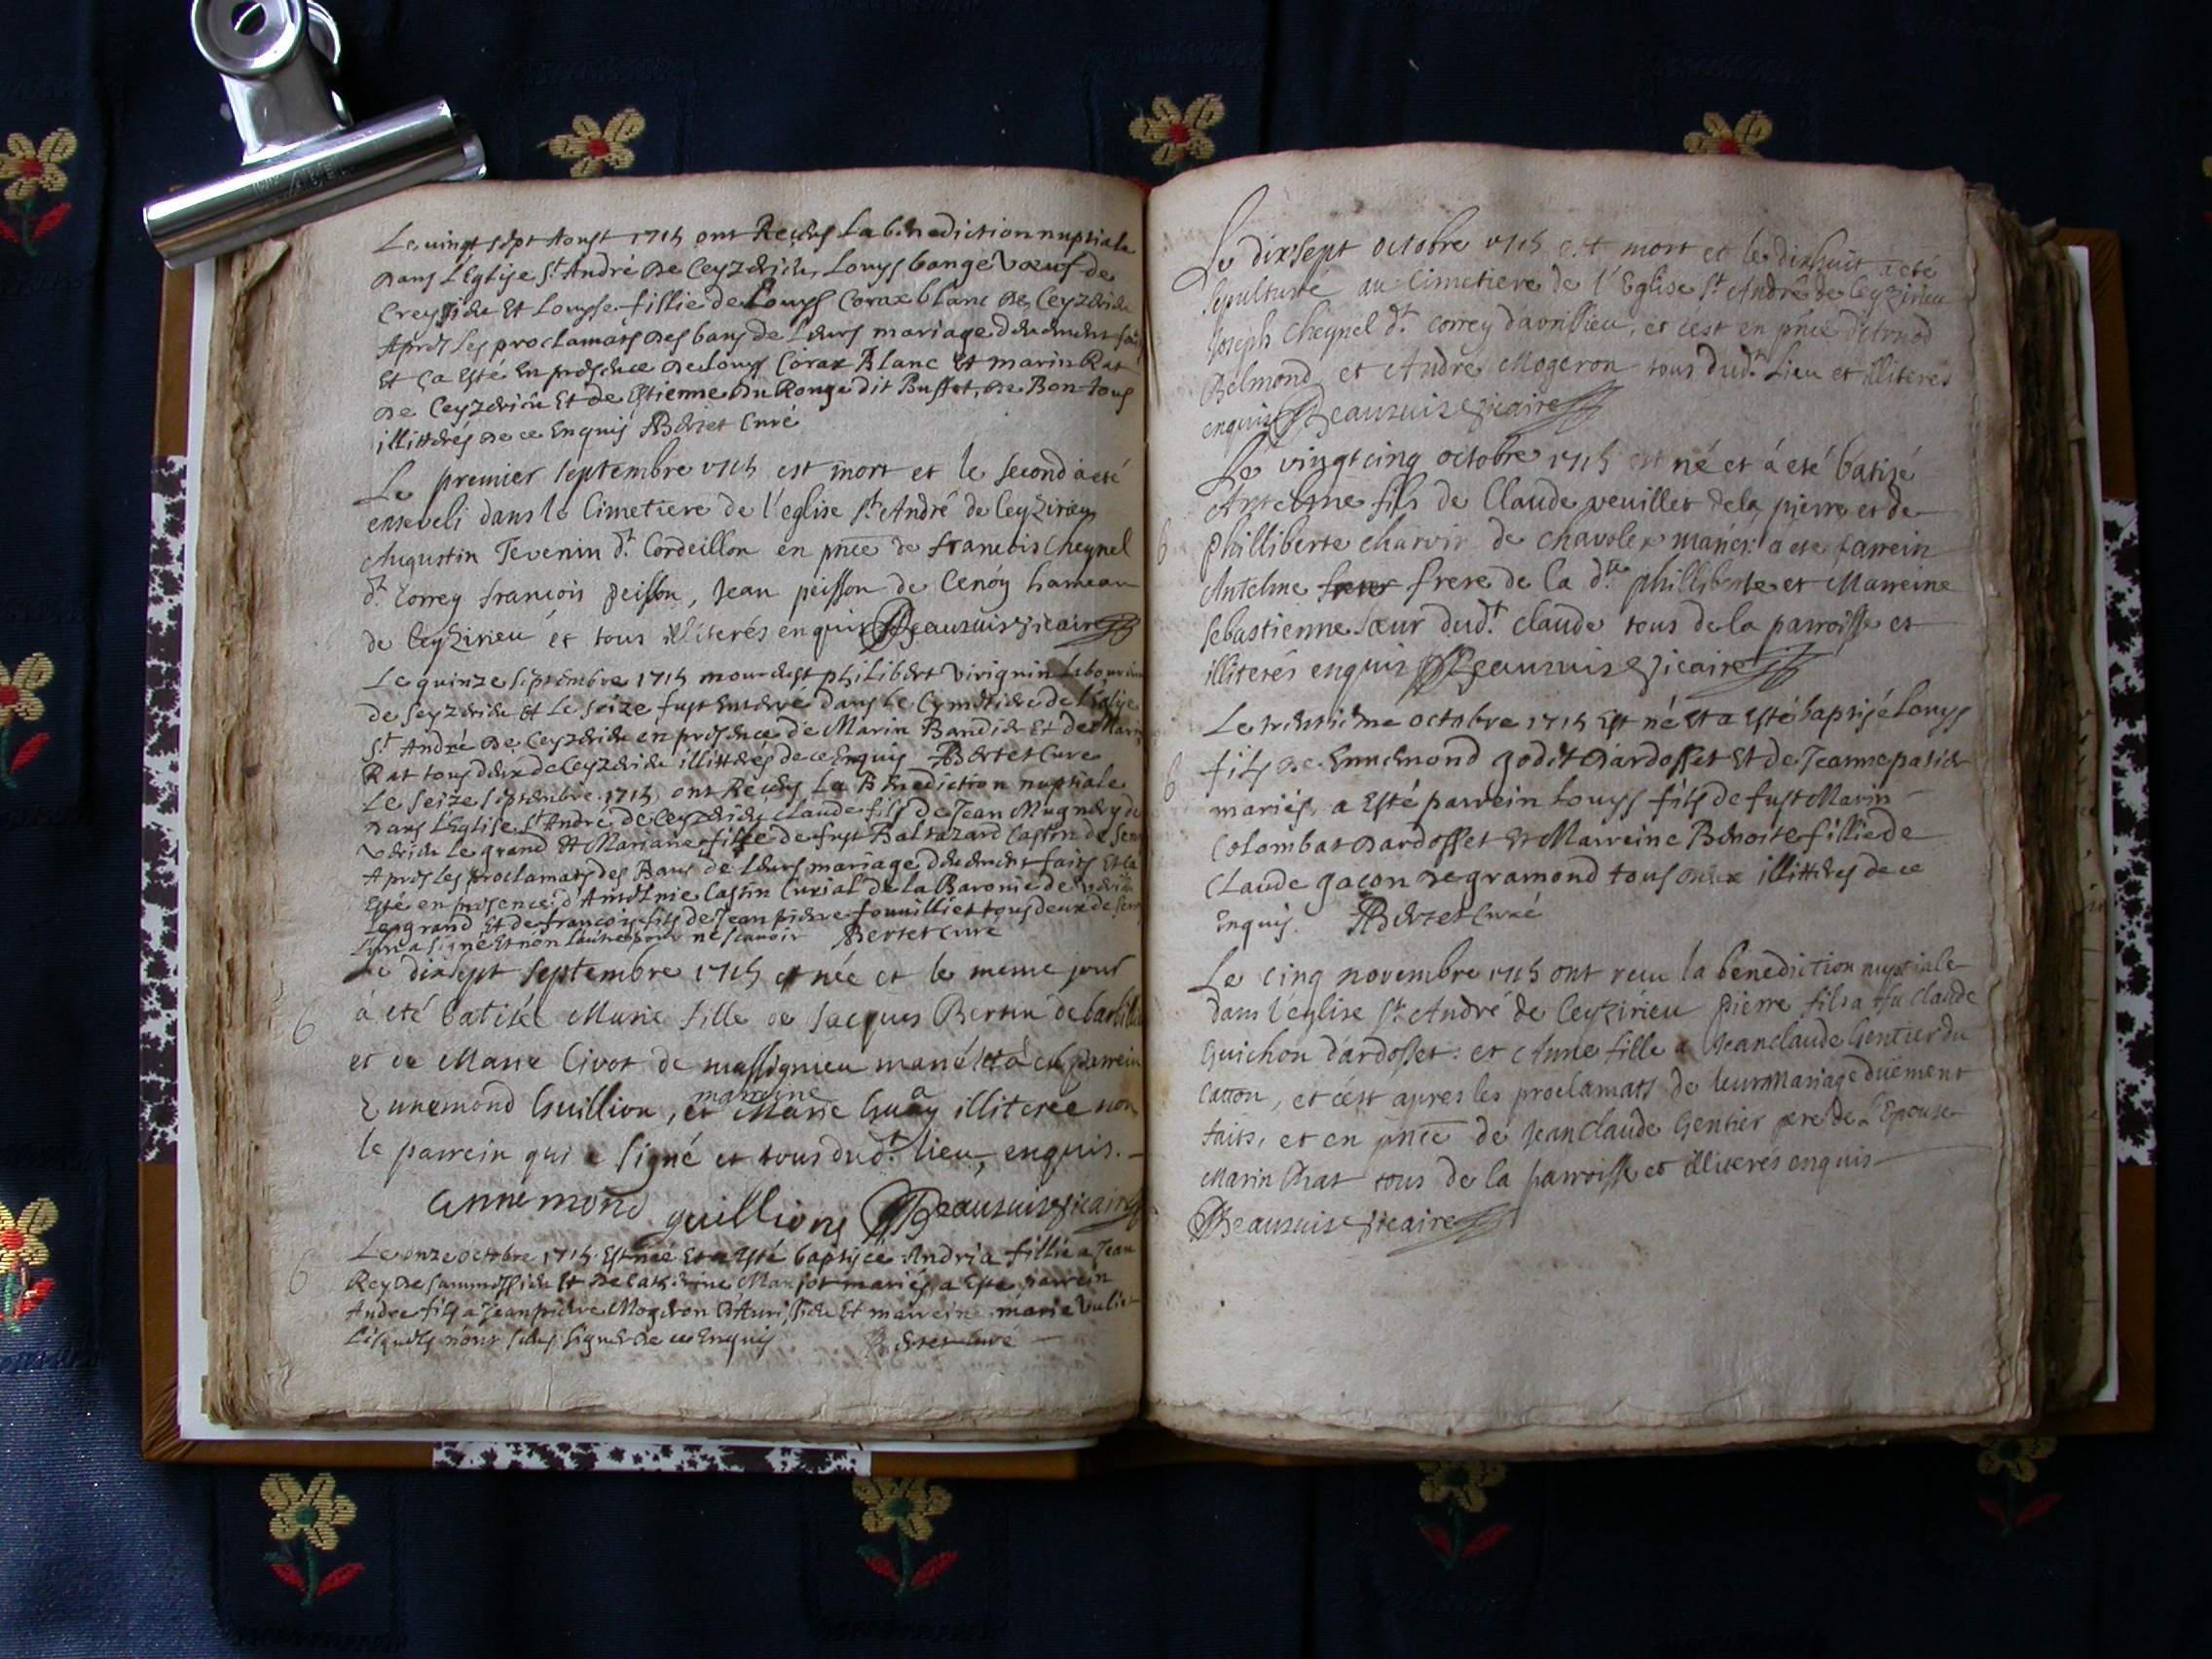 Le vingt sept Aoust 1715 ont Receus La benediction nuptiale
dans L'Eglise St André de Ceyzerieu Louys bange Vœuf de
Creyssieu Et Louyse fillie de Louys Corax blanc de Ceyzerieu
Apres les proclamats des bans de Leurs mariage deuement
Et ça Esté En presence de Louys Corax Blanc Et marin Rat
de Ceyzerieu Et de Estienne du Rouge dit Buffet, de Bon tous
illitterés de ce Enquis Bertet Curé
Le premier septembre 1715 est mort et le second a eté
enseveli dans le Cimetiere de l'eglise St André de Ceyzirieu
Augustin Tevenin dt. Cordeillon en pnce de francois Cheynel
dt. Correy francois peisson, Jean peisson de Cenoy hameau
de Ceyzirieu et tous illiterés enquis Beausuis Vicaire
Le quinze septembre 1715 mourust philibert Virignin
de Ceyzerieu Et Le seize fust Enterré dans Le Cymetiere de l'Eglise
St André de Ceyzerieu en presence de Marin Bandier Et de Marin
Rat tous deux de Ceyzerieu illitterés de ce Enquis Bertet Curé
Le seize septembre 1715 ont Receus La Benediction nuptiale
Dans L'Eglise St André de Ceyzerieu Claude fils de Jean Mugnery de
Le grand Et Mariane fille de fust Baltazard Castin de
Apres les proclamats des Bans de Leurs mariage deuement faits Et ca
Esté en presence d'Antoelmie Castin Curial de la Baronie de
Le grand Et de francois fils de Jean pierre fouuilliet tous deux de
signé Et non L'autre pour ne scavoir Bertet Curé
Le dixsept septembre 1715 est née et le meme jour
6 à eté batisée Marie fille de Jacques Bertin de
et de Marie Civot de massignieu mariés et a eté parrein
Ennemond Guillion, et marreine Marie illiterée non
le parrein qui a signé et tous dud.t lieu, enquis.
Ennemond guillions Beausuis Vicaire
Le onze octobre 1715 Est née Et a Esté baptisée Andria fillie a Jean
6 Rey de sammeyssieu Et de Catherine mariés, a Esté parrein
Andre fils a Jean pierre Mogeron Et marreine marie Vulie
Lesquels n'ont sceus signer de ce Enquis Bertet Curé
Le dixsept octobre 1715 est mort et le dixhuit a eté
sepulturé au Cimetiere de l'Eglise St André de Ceyzirieu
Joseph Cheynel dt. Correy d'avrissieu, et c'est en pnce
Belmond et André Mogeron tous dud.t Lieu et illiterés
enquis Beausuis Vicaire
Le vingtcinq octobre 1715 est né et a eté batisé
Antelme fils de Claude veuillet de la pierre et de
6 philliberte charvin de chavoley mariés: a eté parrein
Antelme frere de la d.te philliberte et Marreine
Sebastienne sœur dud.t Claude tous de la parroisse et
illiterés enquis Beausuis Vicaire
Le trentieme octobre 1715 Est né Et a Esté baptisé Louys
6 fils de Ennemond godet d'ardosset Et de Jeanne patier
mariés, a Esté parrein Louys fils de fust Marin
Colombat d'ardosset Et Marreine Benoite fillie de
Claude gaçon de gramond tous deux illitterés de ce
Enquis. Bertet Curé
Le cinq novembre 1715 ont receu la benediction nuptiale
dans l'eglise St André de Ceyzirieu pierre fils a fu Claude
Guichon d'ardosset: et Anne fille a Jeanclaude Gentier du
Catton, et c'est apres les proclamats de leur mariage duement
faits, et en pnce de Jeanclaude Gentier pere de l'Epouse
Marin Chat tous de la parroisse et illiterés enquis
Beausuis Vicaire